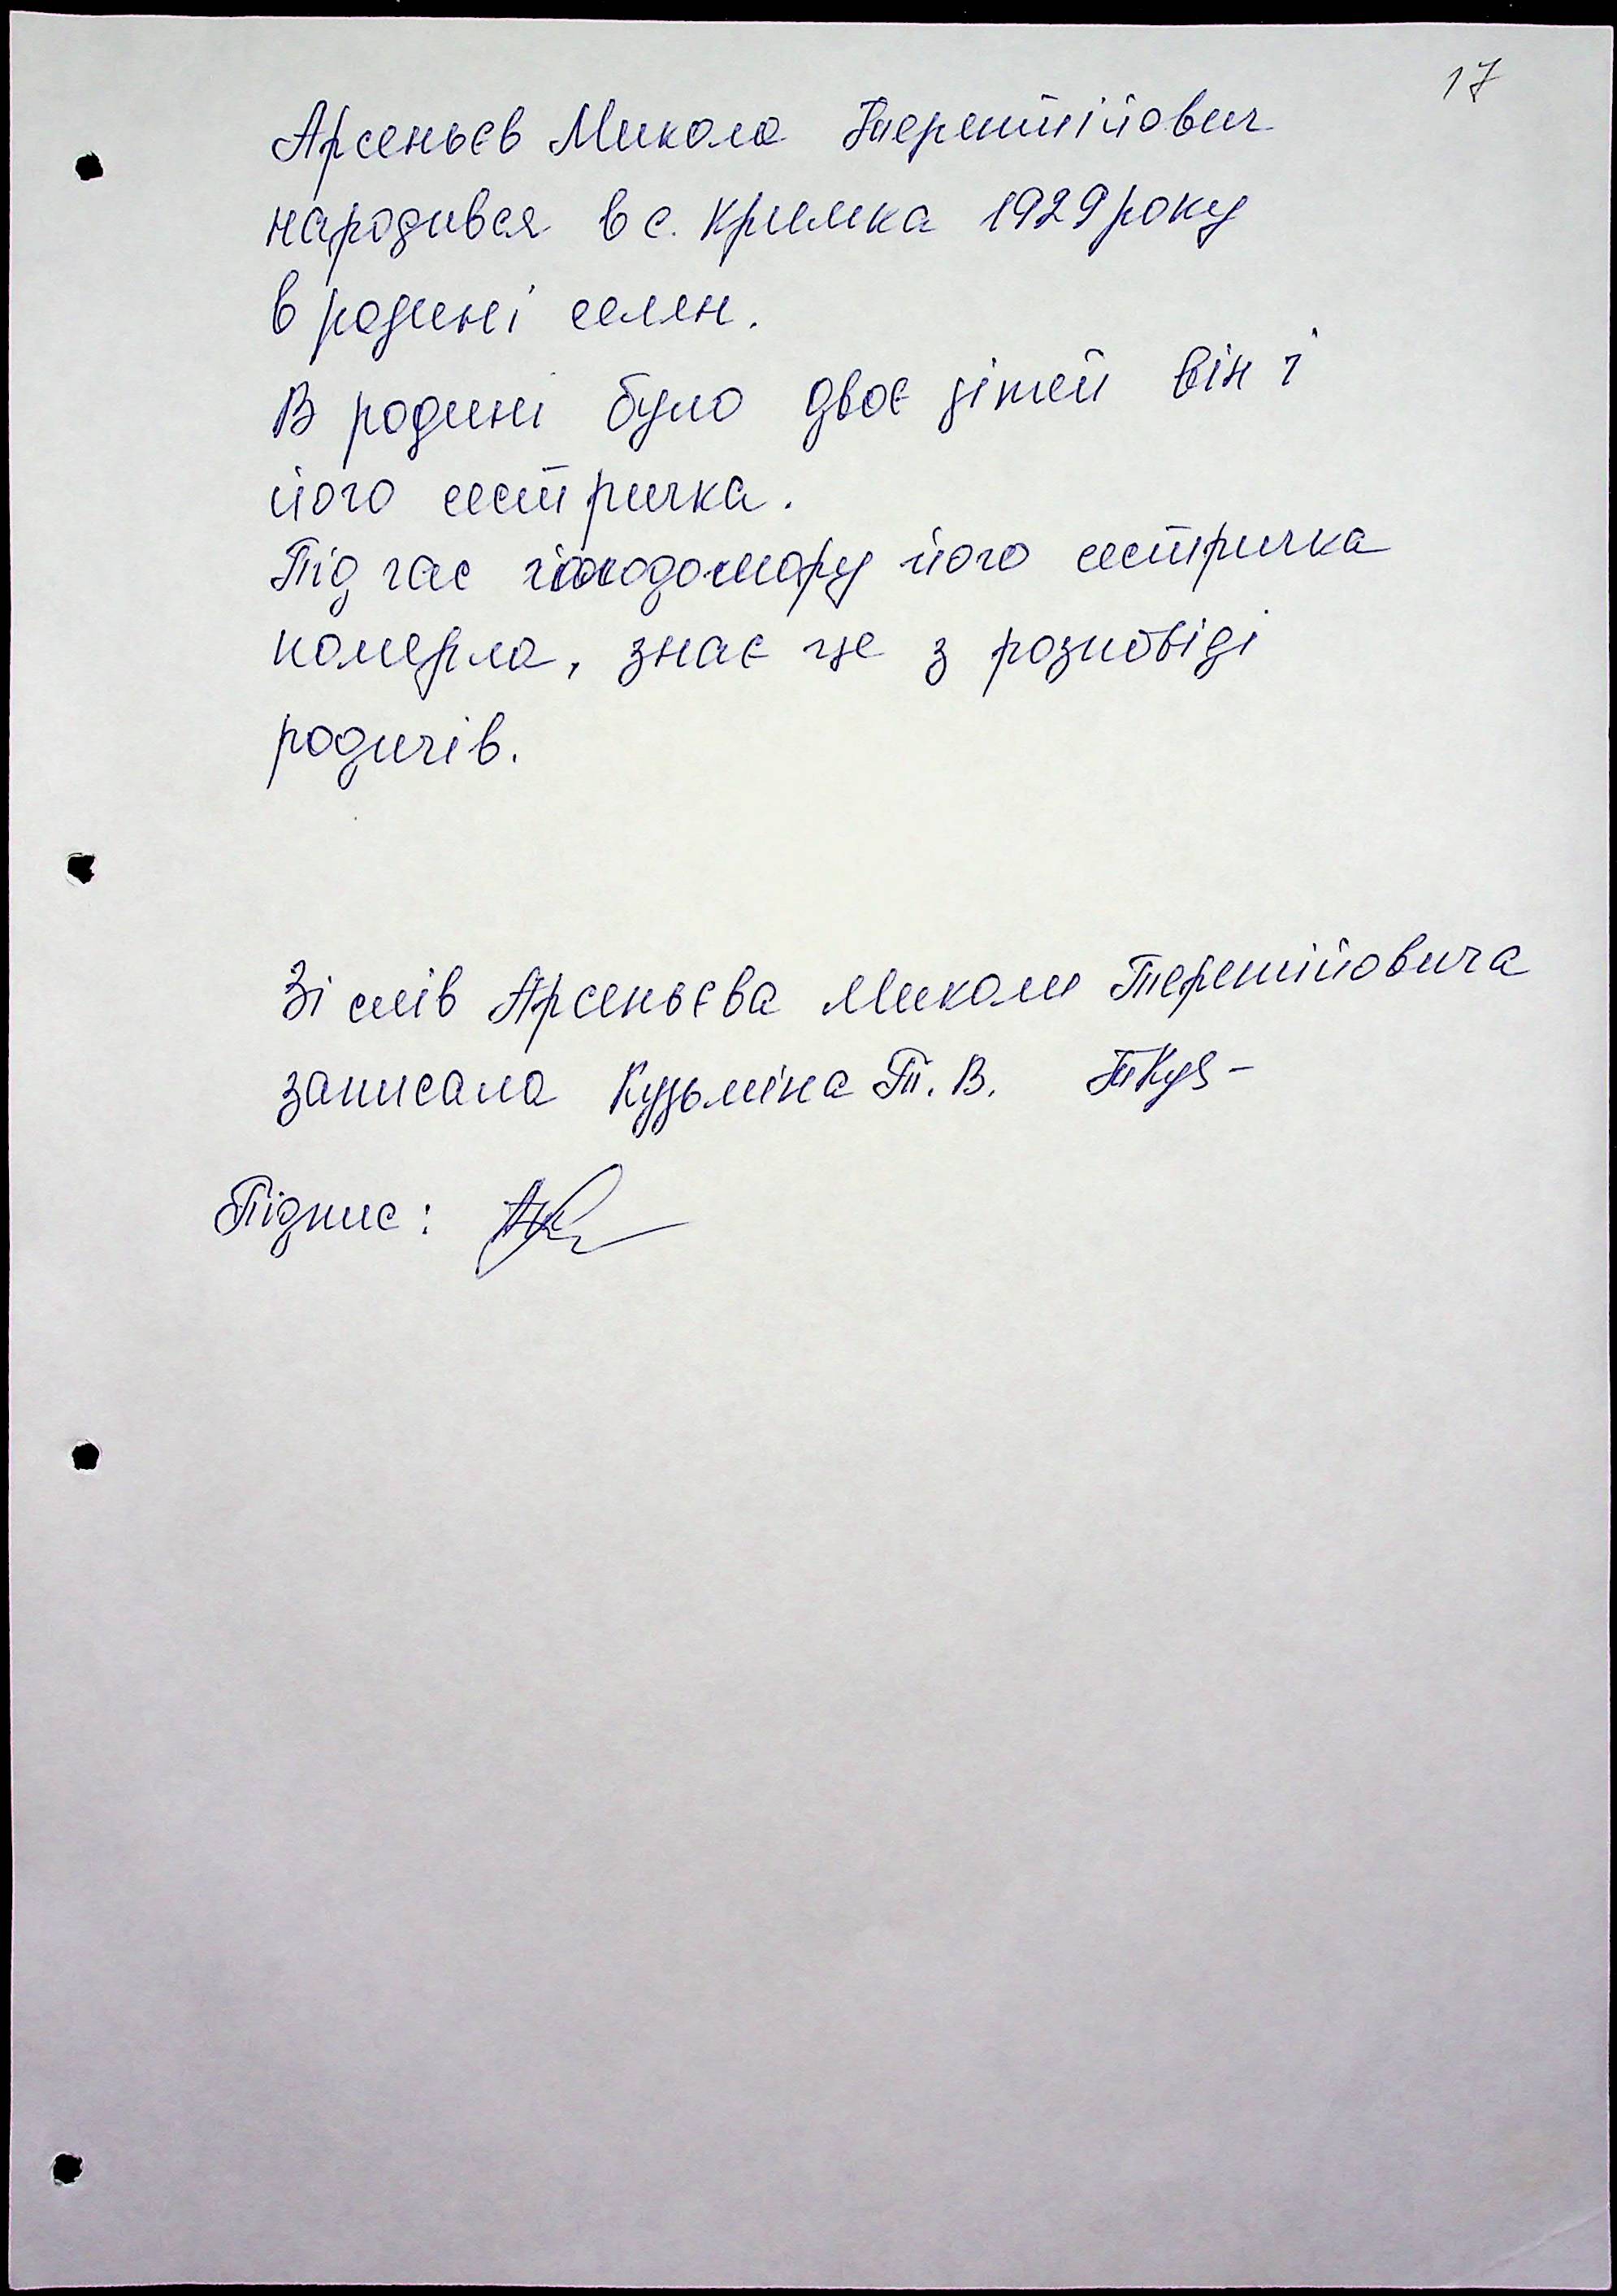 17
Арсеньєв Микола Терентійович
народився в с. Кримка 1929 року
в родині селян.
В родині було двоє дітей він і
його сестричка.
Під час голодомору його сестричка
померла, знає це з розповіді
родичів.
Зі слів Арсеньєва Миколи Терентійовича
записала Кузьміна Т. В.
Підпис: